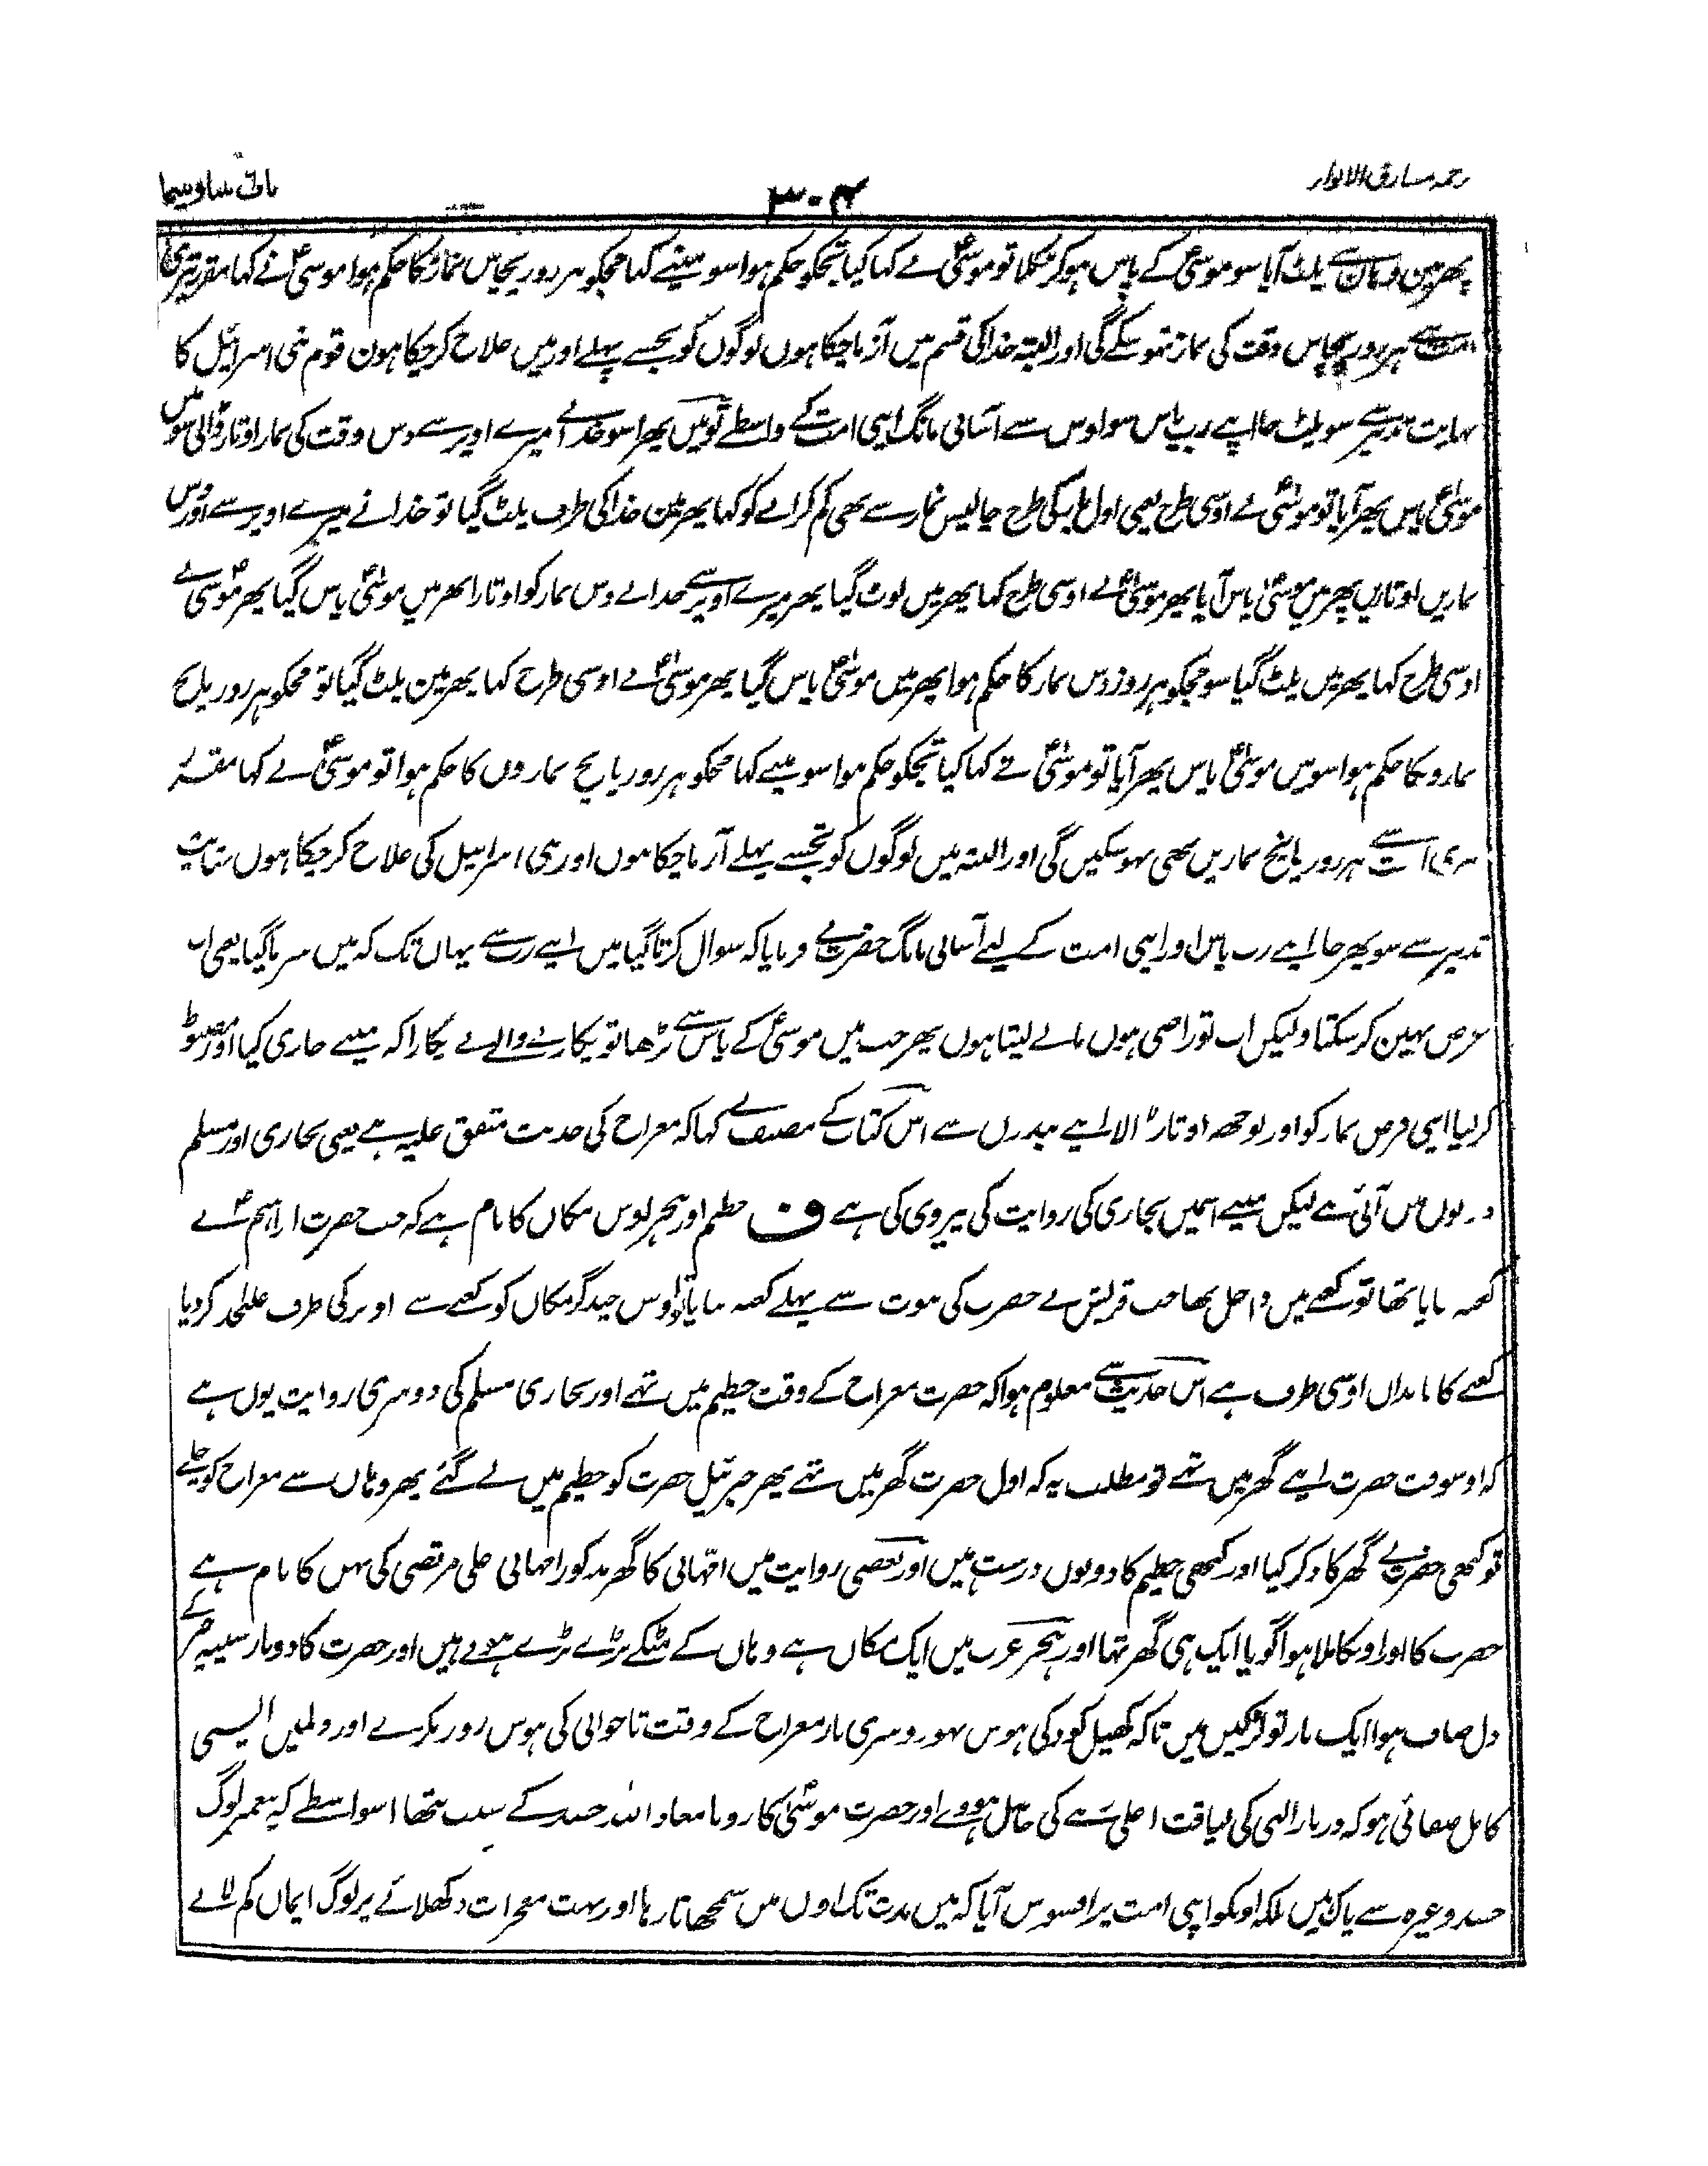 ترجمہ مشارق الانوار
۳۰۴
پھر مین وہان سے پلٹ آیا سو موسیٰؑ کے پاس ہوکر نکلا تو موسیٰؑ نے کہا کیا تجکو حکم ہوا سو مینے کہا مجکو ہر روز پچاس نماز کا حکم ہوا موسیٰؑ نے کہا مقرر تیری
امت سے ہر روز پچاس وقت کی نماز نہوسکے گی اور البتہ خدا کی قسم میں آزما چکا ہوں لوگوں کو تجسے پہلے اور میں علاج کرچکا ہون قوم بنی اسرائیل کا
نہایت تدبیر سے سو پلٹ جا اپنے رب پاس سو اوس سے آسانی مانگ اپنی امت کے واسطے تو میں پھرا سو خدا نے میرے اوپر سے دس وقت کی نماز اوتار ڈالی سو میں
موسیٰؑ پاس پھر آیا تو موسیٰؑ نے اوسی طرح یعنی اول بار کی طرح چالیس نماز سے بھی کم کرانے کو کہا پھر مین خدا کی طرف پلٹ گیا تو خدا نے میرے اوپر سے اور دس
نمازیں اوتاریں پھر میں موسیٰؑ پاس آیا پھر موسیٰؑ نے اوسی طرح کہا پھر میں لوٹ گیا پھر میرے اوپر سے خدا نے دس نماز کو اوتارا پھر میں موسیٰؑ پاس گیا پھر موسیٰؑ نے
اوسی طرح کہا پھر میں پلٹ گیا سو مجکو ہر روز دس نماز کا حکم ہوا پھر میں موسیٰؑ پاس گیا پھر موسیٰؑ نے اوسی طرح کہا پھر مین پلٹ گیا تو مجکو ہر روز پانچ
نمازونکا حکم ہوا سو میں موسیٰؑ پاس پھر آیا تو موسیٰؑ نے کہا کیا تجکو حکم ہوا سو مینے کہا مجکو ہر روز پانچ نمازوں کا حکم ہوا تو موسیٰؑ نے کہا مقرر
تیری امت سے ہر روز پانچ نمازیں بھی نہوسکیں گی اور البتہ میں لوگوں کو تجسے پہلے آزما چکا ہوں اور بنی اسرائیل کی علاج کرچکا ہوں نہایت
تدبیر سے سو پھر جا اپنے رب پاس اور اپنی امت کے لیے آسانی مانگ حضرت نے فرمایا کہ سوال کرتا گیا میں اپنے رب سے یہاں تک کہ میں شرما گیا یعنی اب
عرض نہین کرسکتا ولیکن اب تو راضی ہوں مانے لیتا ہوں پھر جب میں موسیٰؑ کے پاس سے بڑھا تو پکارنے والے نے پکارا کہ مینے جاری کیا اور مضبوط
کردیا اپنی فرض نماز کو اور بوجھ اوتار ڈالا اپنے بندوں سے اس کتاب کے مصنف نے کہا کہ معراج کی حدیث متفق علیہ ہے یعنی بخاری اور مسلم
دونوں میں آئی ہے لیکن مینے اسمیں بخاری کی روایت کی پیروی کی ہے ف حطیم اور حجر اوس مکان کا نام ہے کہ جب حضرت ابراہیمؑ نے
کعبہ بنایا تھا تو کعبے میں داخل تھا جب قریش نے حضرت کی نبوت سے پہلے کعبہ بنایا تو اوس چند گز مکان کو کعبے سے اوتر کی طرف علیحدہ کردیا
کعبے کا نابدان اوسی طرف ہے اس حدیث سے معلوم ہوا کہ حضرت معراج کے وقت حطیم میں تھے اور بخاری مسلم کی دوسری روایت یوں ہے
کہ اوسوقت حضرت اپنے گھر میں تھے تو مطلب یہ کہ اول حضرت گھر میں تھے پھر جبرئیل حضرت کو حطیم میں لے گئے پھر وہاں سے معراج کو چلے
تو کبھی حضرت نے گھر کا ذکر کیا اور کبھی حطیم کا دونوں درست ہیں اور بعضی روایت میں امہانی کا گھر مذکور امہانی علی مرتضی کی بہن کا نام ہے
حضرت کا اور اونکا ملا ہوا گویا ایک ہی گھر تھا اور ہجر عرب میں ایک مکان ہے وہاں کے مٹکے بڑے بڑے ہوتے ہیں اور حضرت کا دوبار سینہ
دل صاف ہوا ایک بار تو لڑکپن میں تاکہ کھیل کود کی ہوس نہو دوسری بار معراج کے وقت تا جوانی کی ہوس زور نکرے اور دلمیں ایسی
کامل صفائی ہو کہ دربار الہی کی لیاقت اعلی سے کی حاصل ہووے اور حضرت موسیٰؑ کا رونا معاذ اللہ حسد کے سبب نتھا اسواسطے کہ پیغمبر لوگ
حسد وغیرہ سے پاک ہیں بلکہ اونکو اپنی امت پر افسوس آیا کہ میں مدت تک اون میں سمجھاتا رہا اور بہت معجزات دکھلائے پر لوگ ایمان کم لائے